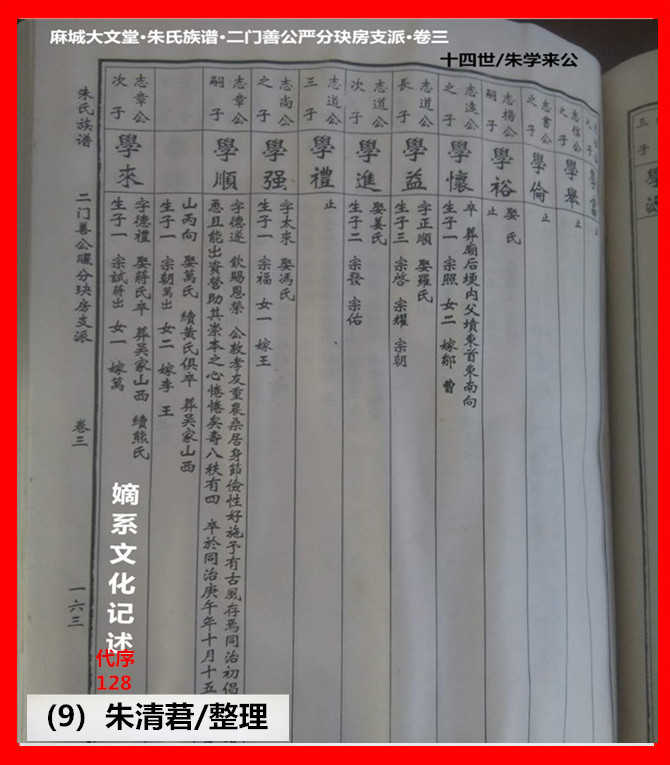 麻城大文堂•朱氏族谱•二门善公严分玦房支派•卷三
十四世/朱学来公
三子
志楊公
嗣子
學裕
娶氏
止
志書公
之子
學倫
止
學舉
止
志遠公
之子
學懷
卒 葬廟后埂内父墳東首東南向
生子一 宗照 女二 嫁鄒 曹
志道公
長子
學益
字正順 娶羅氏
生子三 宗啓 宗耀 宗朝
志道公
次子
學進
娶姜氏
生子二 宗發 宗佑
志道公
三子
學禮
止
志尚公
之子
學强
字太来 娶馮氏
生子一 宗福 女一 嫁王
志章公
嗣子
學順
字德遂 欽賜恩榮 公敦孝友重農桑居身節儉性好施予有古風存焉同治初倡
悳且能出資營助其崇本之心惓惓矣壽八秩有四 卒於同治庚午年十月十五
山丙向 娶萬氏 續黄氏俱卒 葬吴家山西
生子一 宗朝萬出 女二 嫁李 王
志章公
次子
學來
字德禮 娶蔣氏卒 葬吴家山西 續熊氏
生子一 宗試蔣出 女一 嫁萬
朱氏族谱
二门善公曮分玦房支派
卷三
一六三
嫡系文化记述
代序
128
(9) 朱清莙/整理